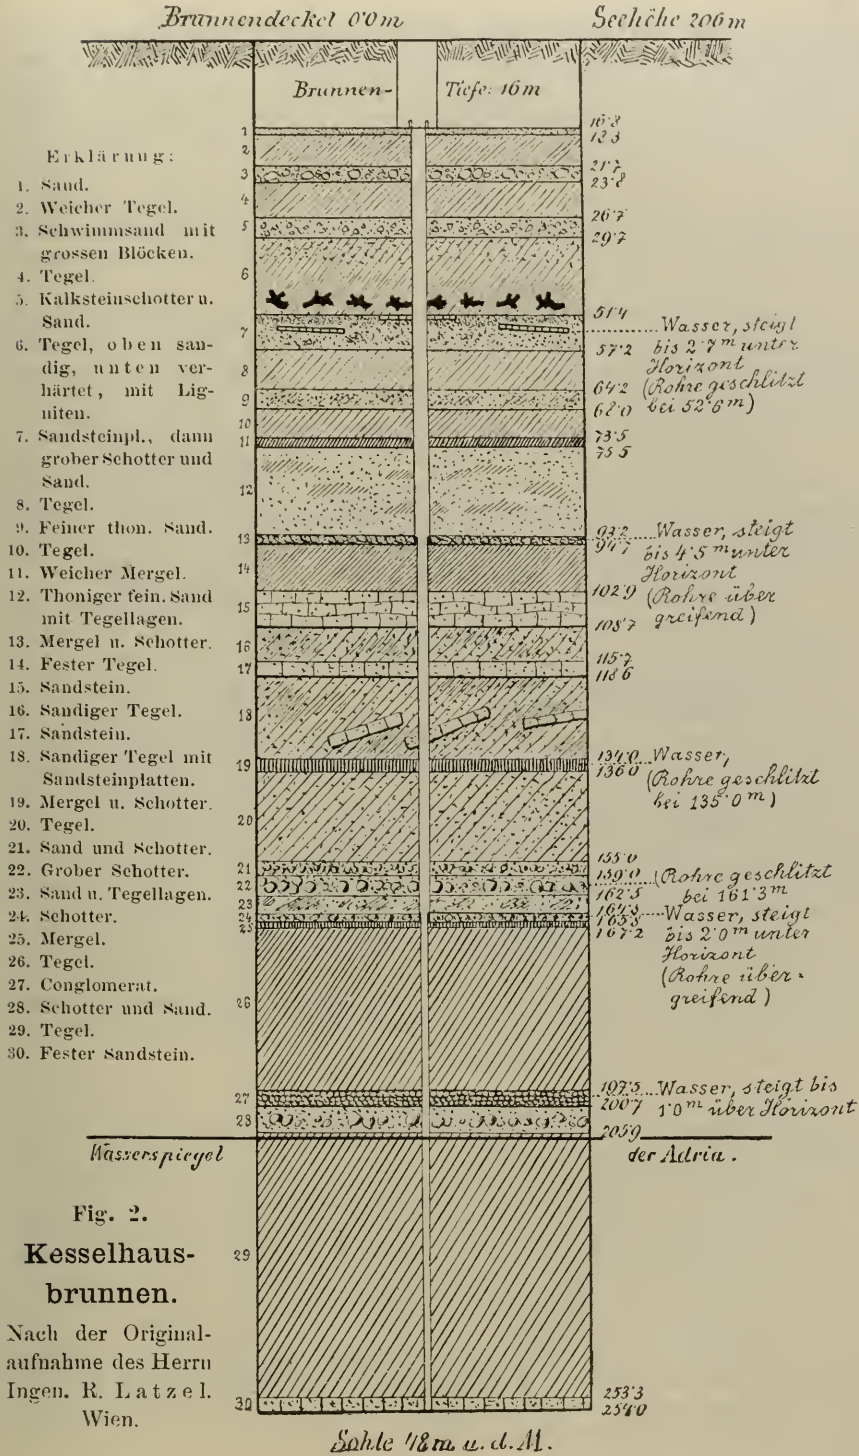 Brunnendeckel 0·0 m Seehöhe 206 m
Brunnen- Tiefe: 16 m
Erklärung:
1. Sand.
2. Weicher Tegel.
3. Schwimmsand mit
grossen Blöcken.
4. Tegel.
5. Kalksteinschotter u.
Sand.
6. Tegel, oben san-
dig, unten ver-
härtet, mit Lig-
niten.
7. Sandsteinpl., dann
grober Schotter und
Sand.
8. Tegel.
9. Feiner thon. Sand.
10. Tegel.
11. Weicher Mergel.
12. Thoniger fein. Sand
mit Tegellagen.
13. Mergel u. Schotter.
14. Fester Tegel.
15. Sandstein.
16. Sandiger Tegel.
17. Sandstein.
18. Sandiger Tegel mit
Sandsteinplatten.
19. Mergel u. Schotter.
20. Tegel.
21. Sand und Schotter.
22. Grober Schotter.
23. Sand u. Tegellagen.
24. Schotter.
25. Mergel.
26. Tegel.
27. Conglomerat.
28. Schotter und Sand.
29. Tegel.
30. Fester Sandstein.
1
2
3
4
5
6
7
8
9
10
11
12
13
14
15
16
17
18
19
20
21
22
23
24
25
26
27
28
29
30
21·7
23·8
26·7
29·7
51·4
57·2
64·2
68·0
73·5
75·5
93·2
94·7
102·9
108·7
115·7
118·6
134·0
136·0
155·0
159·0
162·5
167·2
197·5
200·7
205·9
253·3
254·0
Wasser, steigt
bis 2·7 m unter
Horizont
(Rohre geschlitzt
bei 52·6 m)
Wasser, steigt
bis 4·5 m unter
Horizont
(Rohre über
greifend)
Wasser,
(Rohre geschlitzt
bei 135·0 m)
(Rohre geschlitzt
bei 161·3 m
Wasser, steigt
bis 2·0 m unter
Horizont
(Rohre über-
greifend)
Wasser, steigt bis
1·0 m über Horizont
Wasserspiegel der Adria.
Fig. 2.
Kesselhaus-
brunnen.
Nach der Original-
aufnahme des Herrn
Ingen. R. Latzel.
Wien.
Sohle 48 m u. d. M.